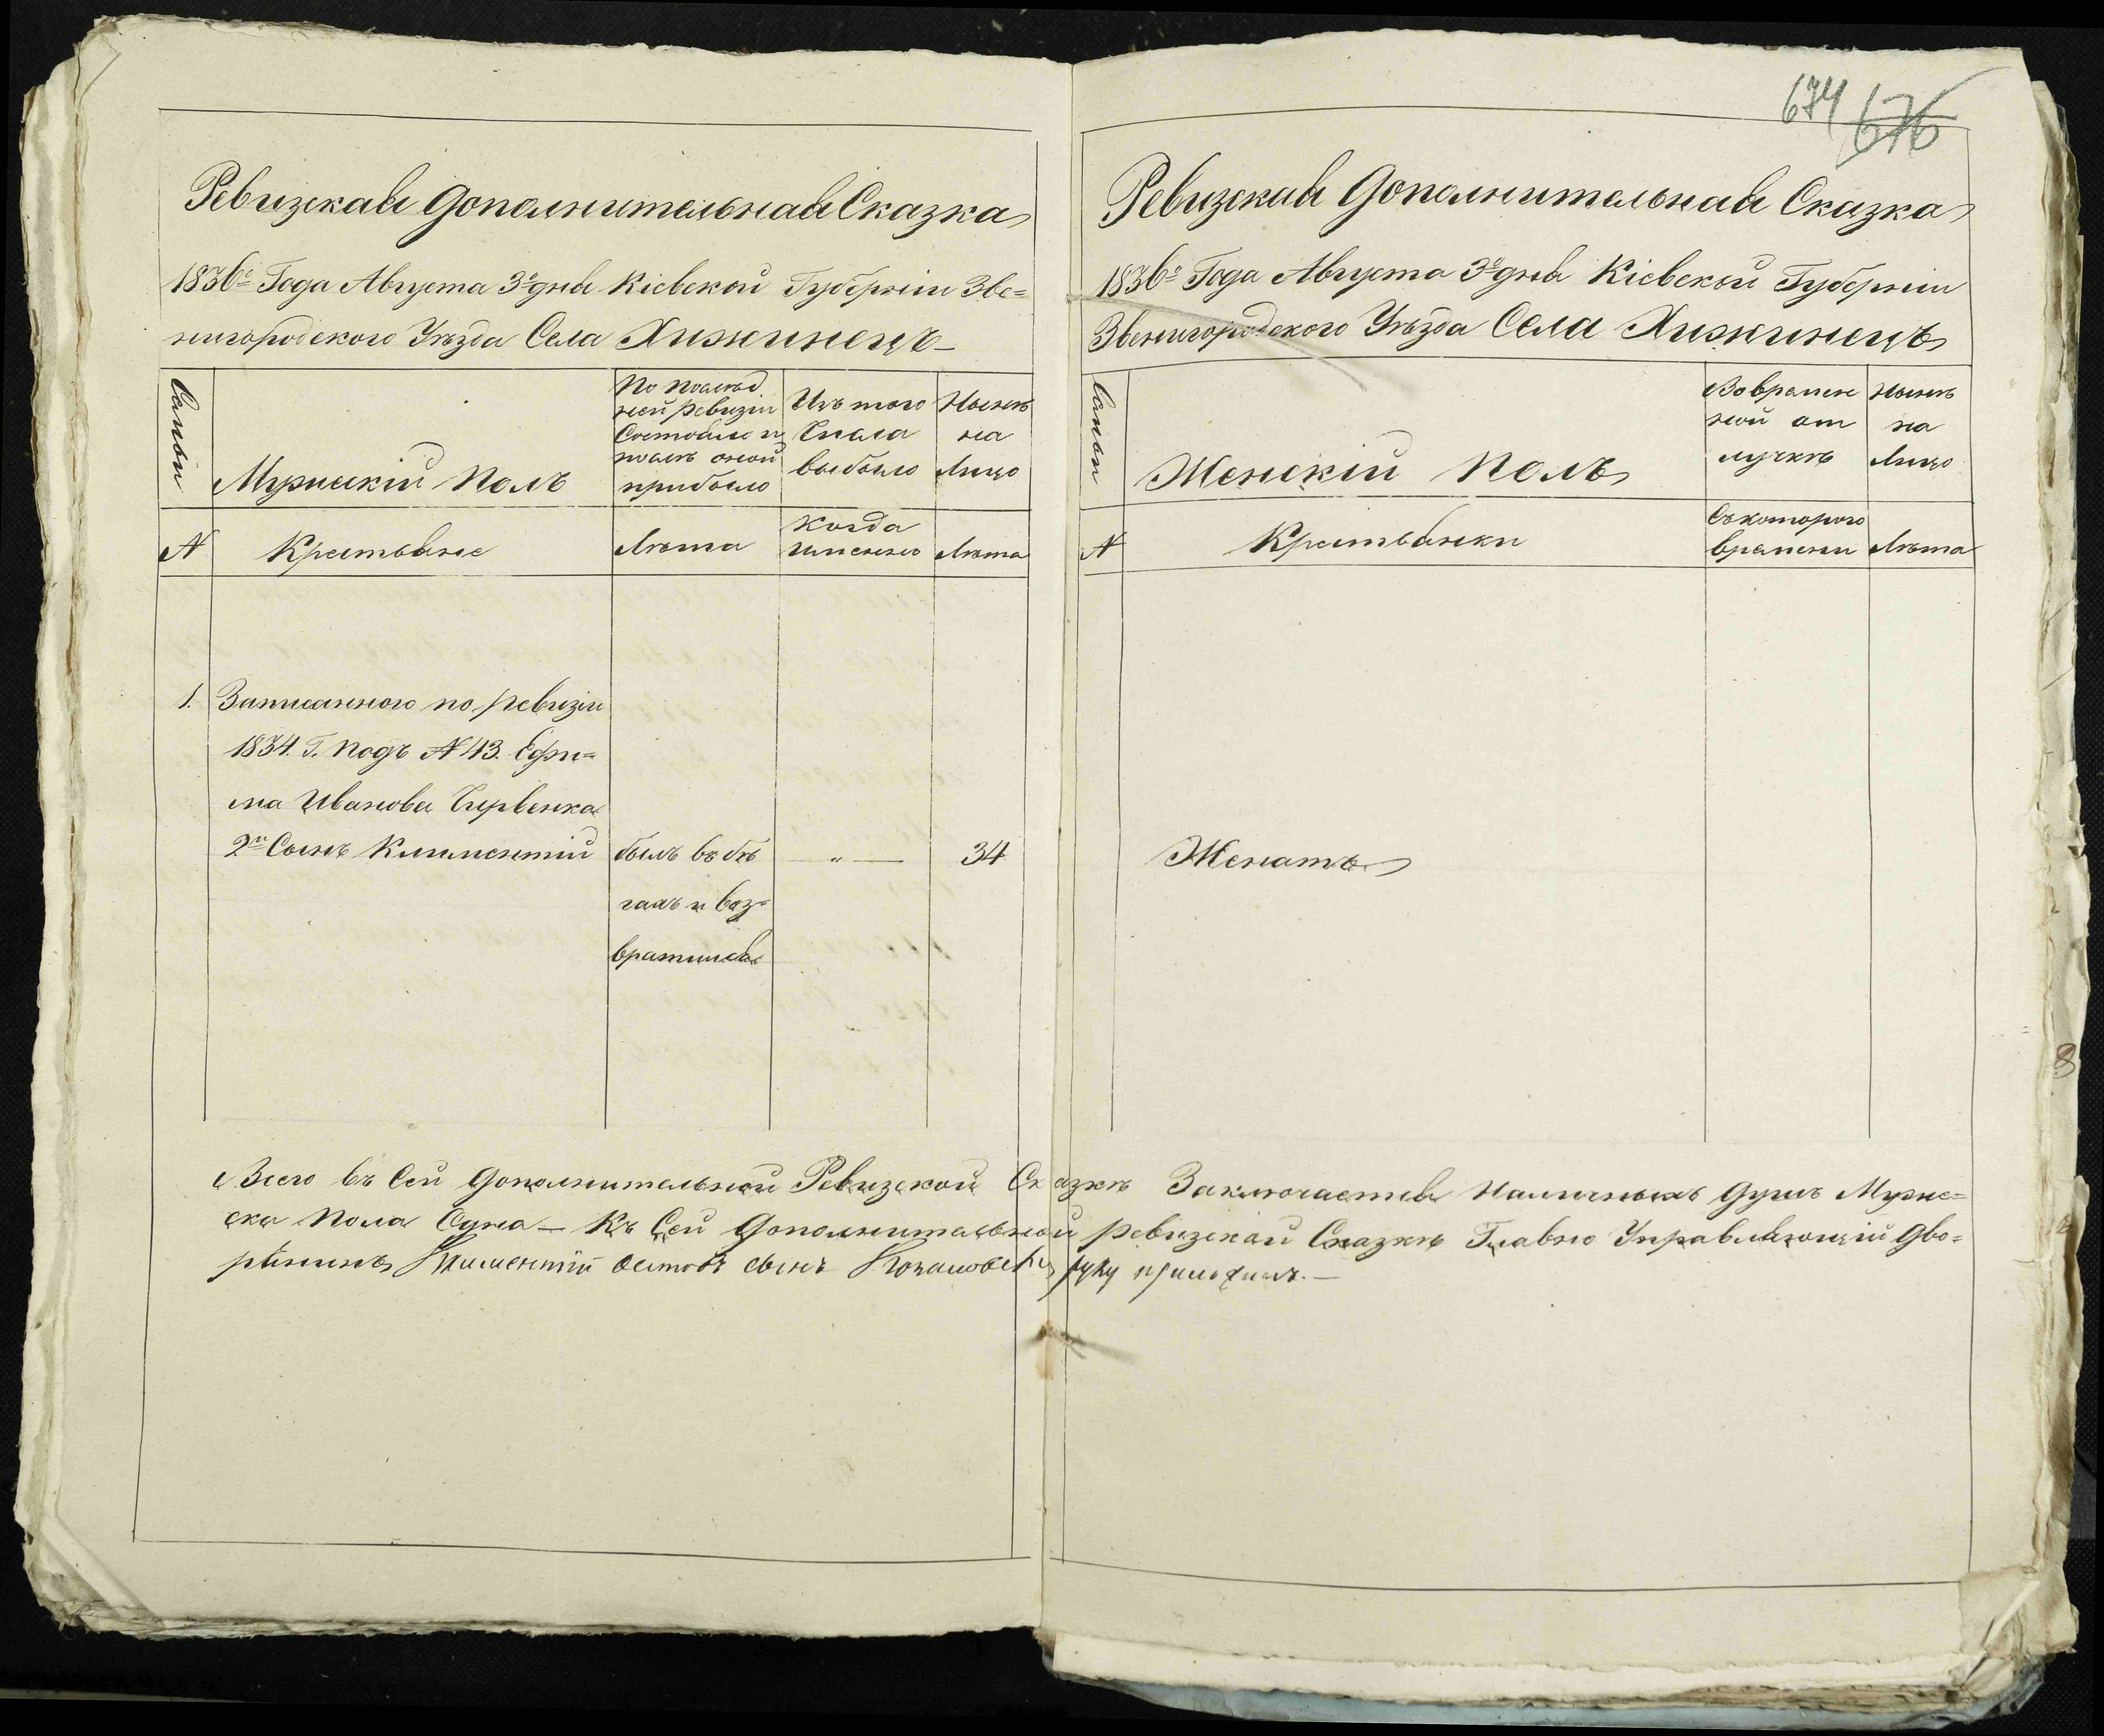 Ревизская Дополнительная Сказка
1836го Года Августа 3го дня Кіевской Губерніи Зве=
нигородского Уѣзда Села Хижинецъ
Семьи
Мужескій Полъ
По послѣд
ней ревизіи
Состояло и
послѣ оной
прибыло
Изъ того
Числа
выбыло
Нынѣ
на
Лицо
N
Крестьяне
Лѣта
Когда
Именно
Лѣта
1. Записанного по ревизіи
1834. Г. подъ N 43. Ефи=
ма Иванова
2й Сынъ Климентій былъ въ бѣ — „ — 34
гахъ и воз=
вратился
674 676
Ревизская Дополнительная Сказка
1836го Года Августа 3го дня Кіевской Губерніи
Звенигородского Уѣзда Села Хижинецъ
Семьи
Женскій Полъ
Во времен
ной от
лучкѣ
Нынѣ
на
Лицо
N
Крестьянки
Съ которого
времени
Лѣта
Женатъ
Всего въ Сей Дополнительной Ревизской Сказкѣ Заключается Наличныхъ душъ Муже=
ска Пола Одна — Къ Сей Дополнительной ревизской Сказкѣ Главно Управляющій Дво=
рянинъ Климентій сынъ руку приложилъ. —